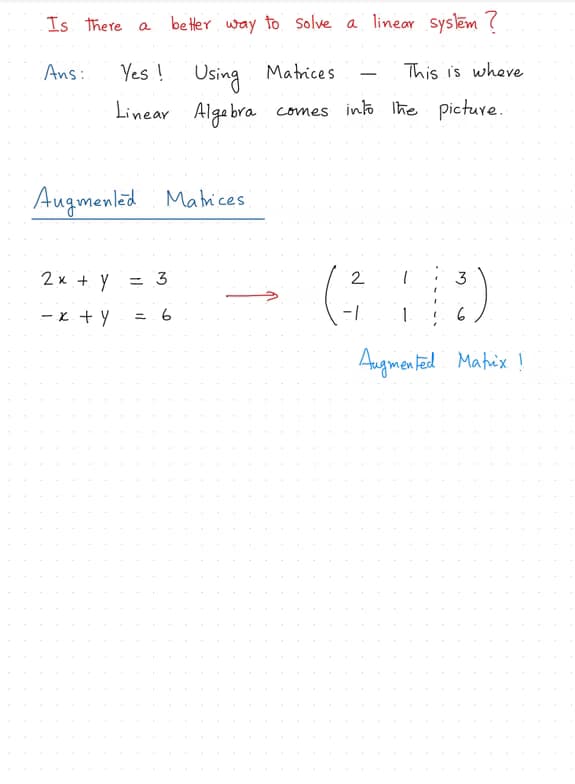 Is there a better way to solve a linear system?
Ans: Yes! Using Matrices — This is where
Linear Algebra comes into the picture.
Augmented Matrices
2x + y = 3 → ( 2 1 ¦ 3 )
-x + y = 6 ( -1 1 ¦ 6 )
Augmented Matrix!